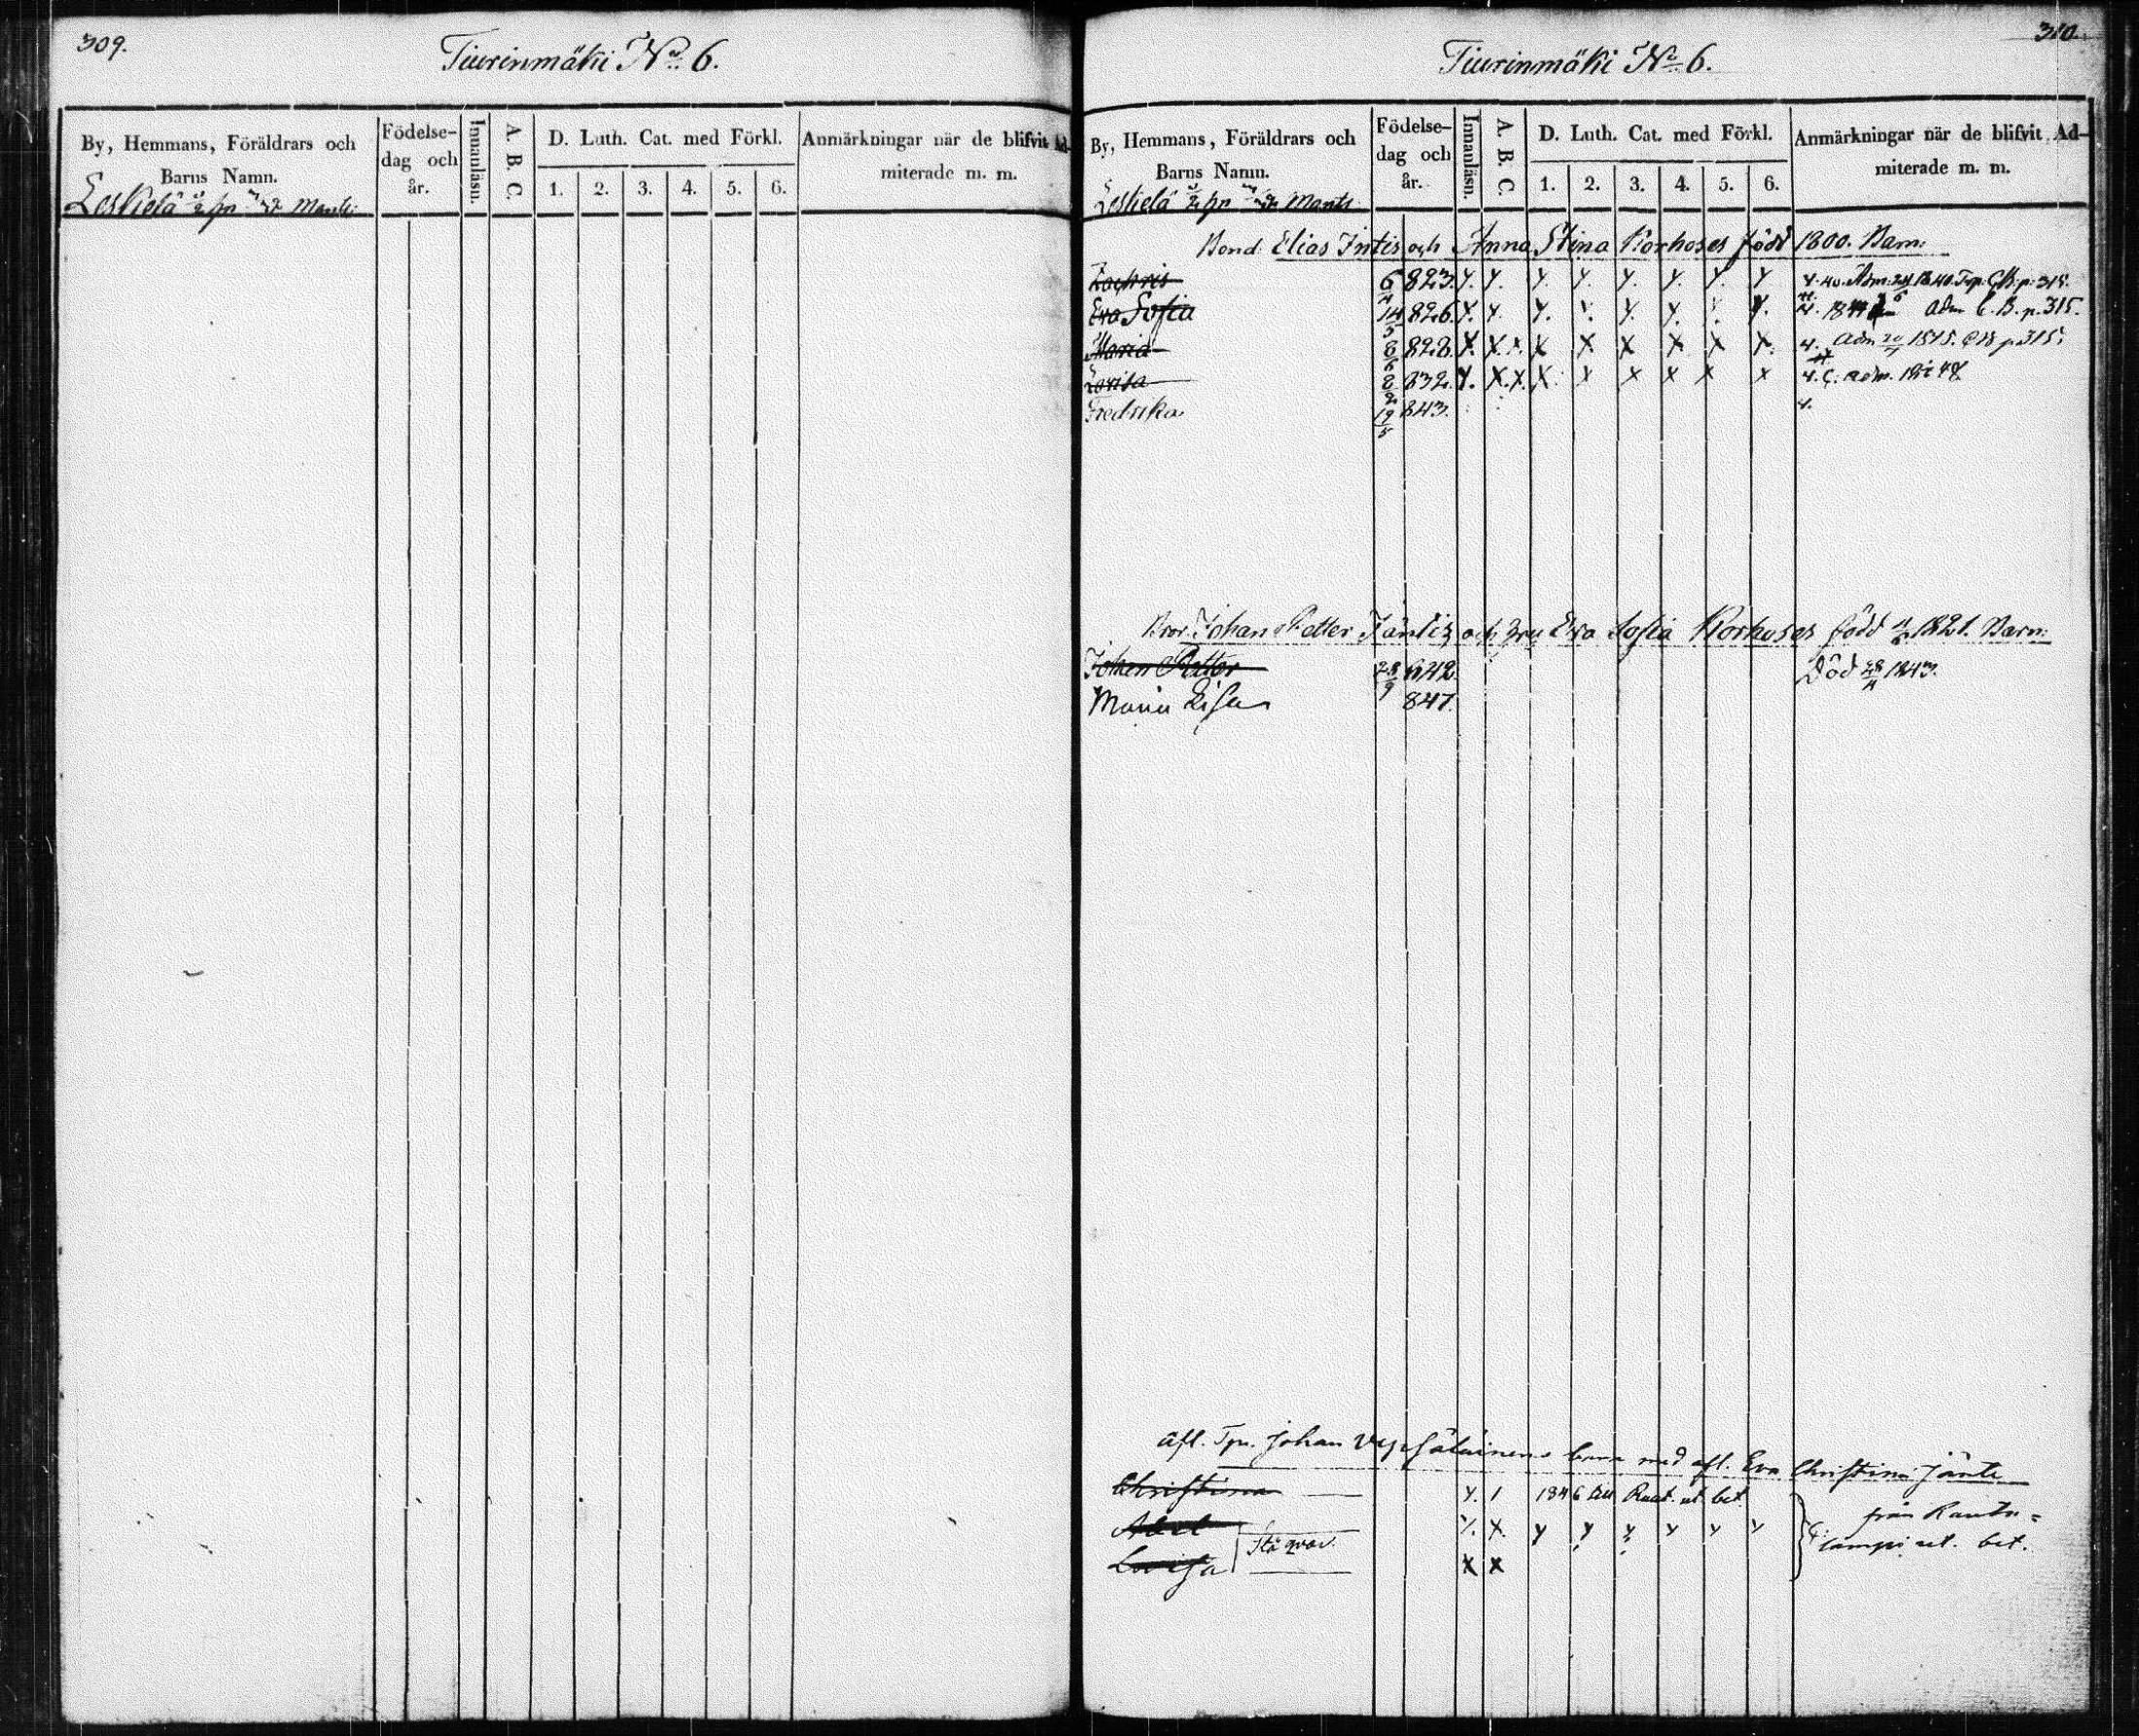 309.
Tiurinmäki No 6.
By, Hemmans, Föräldrars och
Barns Namn.
Födelse-
dag och
år.
Innanläsn.
A. B. C.
D. Luth. Cat. med Förkl.
1. 2. 3. 4. 5. 6.
Anmärkningar när de blifvit Ad-
miterade m. m.
Leskelä Mantl:
310.
Tiurinmäki No 6.
By, Hemmans, Föräldrars och
Barns Namn.
Födelse-
dag och
år.
Innanläsn.
A. B. C.
D. Luth. Cat. med Förkl.
1. 2. 3. 4. 5. 6.
Anmärkningar när de blifvit Ad-
miterade m. m.
Leskelä Mantl
Bond. Elias Intis och Anna Stina Korhoses född 1800. Barn:
Zachris 6/11 823. Y. Y. Y. Y. Y. Y. Y. Y 4.40. Adm. 1840. C.B. p. 315.
Eva Sofia 14/5 826. Y. Y. Y. Y. Y. Y. Y. Y. adm C.B. p. 315.
Maria 8/6 828. X. X. X. X X X X X X. 4. adm 1845. CB p 315.
Lovisa 8/2 832. Y. X. X. X. X X X X X 4. C. adm. 48
Fredrika 19/5 843. 4.
Bror. Johan Petter Jäntis och hru Eva Sofia Korhoses född 1821. Barn:
Johan Petter 28/9 842. Död 28/4 1843.
Maria Lisa 847.
afl. Tpr. Johan barn med afl. Eva Christina Jänti
Christina Y. 1 1846 till Raut. ut bet.
Abel Y. X. Y Y Y Y Y Y från Rauta=
Stå qvar. lampi ut. bet.
Lovisa X X